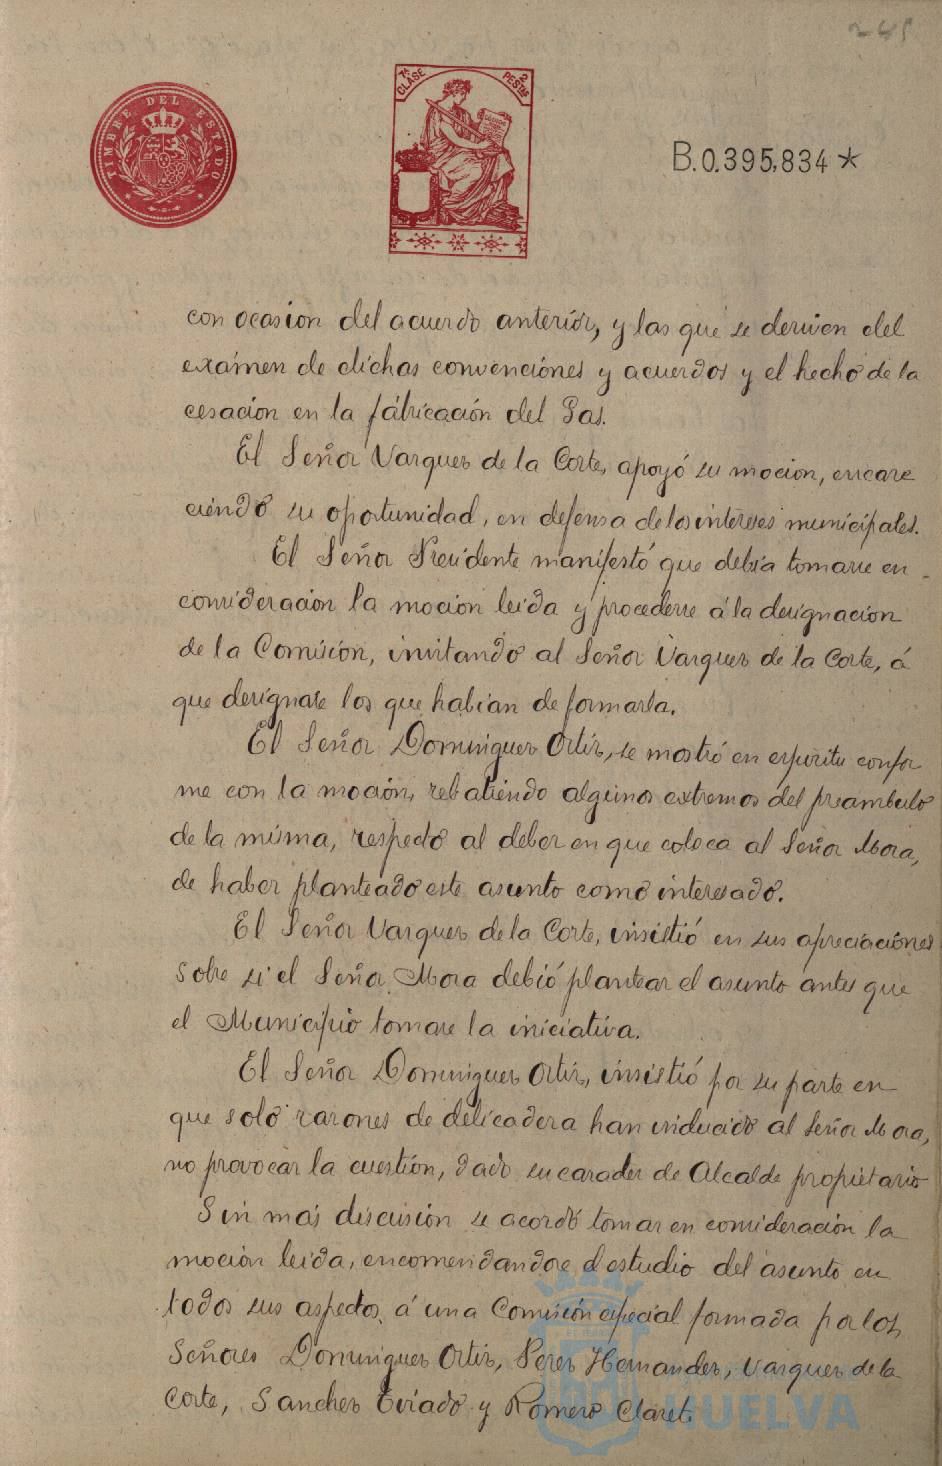 245
TIMBRE DEL ESTADO
7ª CLASE
2 PESTAS
B.0.395,834*
con ocasion del acuerdo anteriór, y las que se deriven del
exámen de dichas convenciónes y acuerdos y el hecho de la
cesacion en la fábricación del Gas.
El Señor Vazquez de la Corte, apoyó su mocion, encare
ciendo su oportunidad, en defensa de los intereses municipales.
El Señor Presidente manifestó que debia tomarse en
consideracion la mocion leida y procederse á la designacion
de la Comisión, invitando al Señor Vazquez de la Corte, á
que designase los que habian de formarla.
El Señor Dominguez Ortiz, se mostró en espiritu confor
me con la moción, rebatiendo algunos extremos del preambulo
de la misma, respecto al deber en que coloca al Señor Mora,
de haber planteado este asunto como interesado.
El Señor Vazquez de la Corte, insistió en sus apreciaciónes
sobre si el Señor Mora debió plantear el asunto antes que
el Municipio tomase la iniciativa.
El Señor Dominguez Ortiz, insistió por su parte en
que solo razones de delicadeza han inducido al Señor Mora,
no provocar la cuestión, dado su caracter de Alcalde propietario
Sin más discusión se acordó tomar en consideración la
moción leida, encomendandose el estudio del asunto en
todos sus aspectos, á una Comisión especial formada por los
Señores Dominguez Ortiz, Perez Hernandez, Vazquez de la
Corte, Sanchez Tirado y Romero Claret.
HUELVA